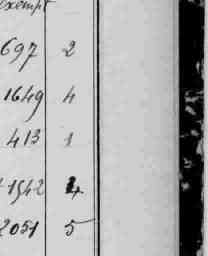 exempt
697 2
1649 4
413 1
1942 4
2051 5